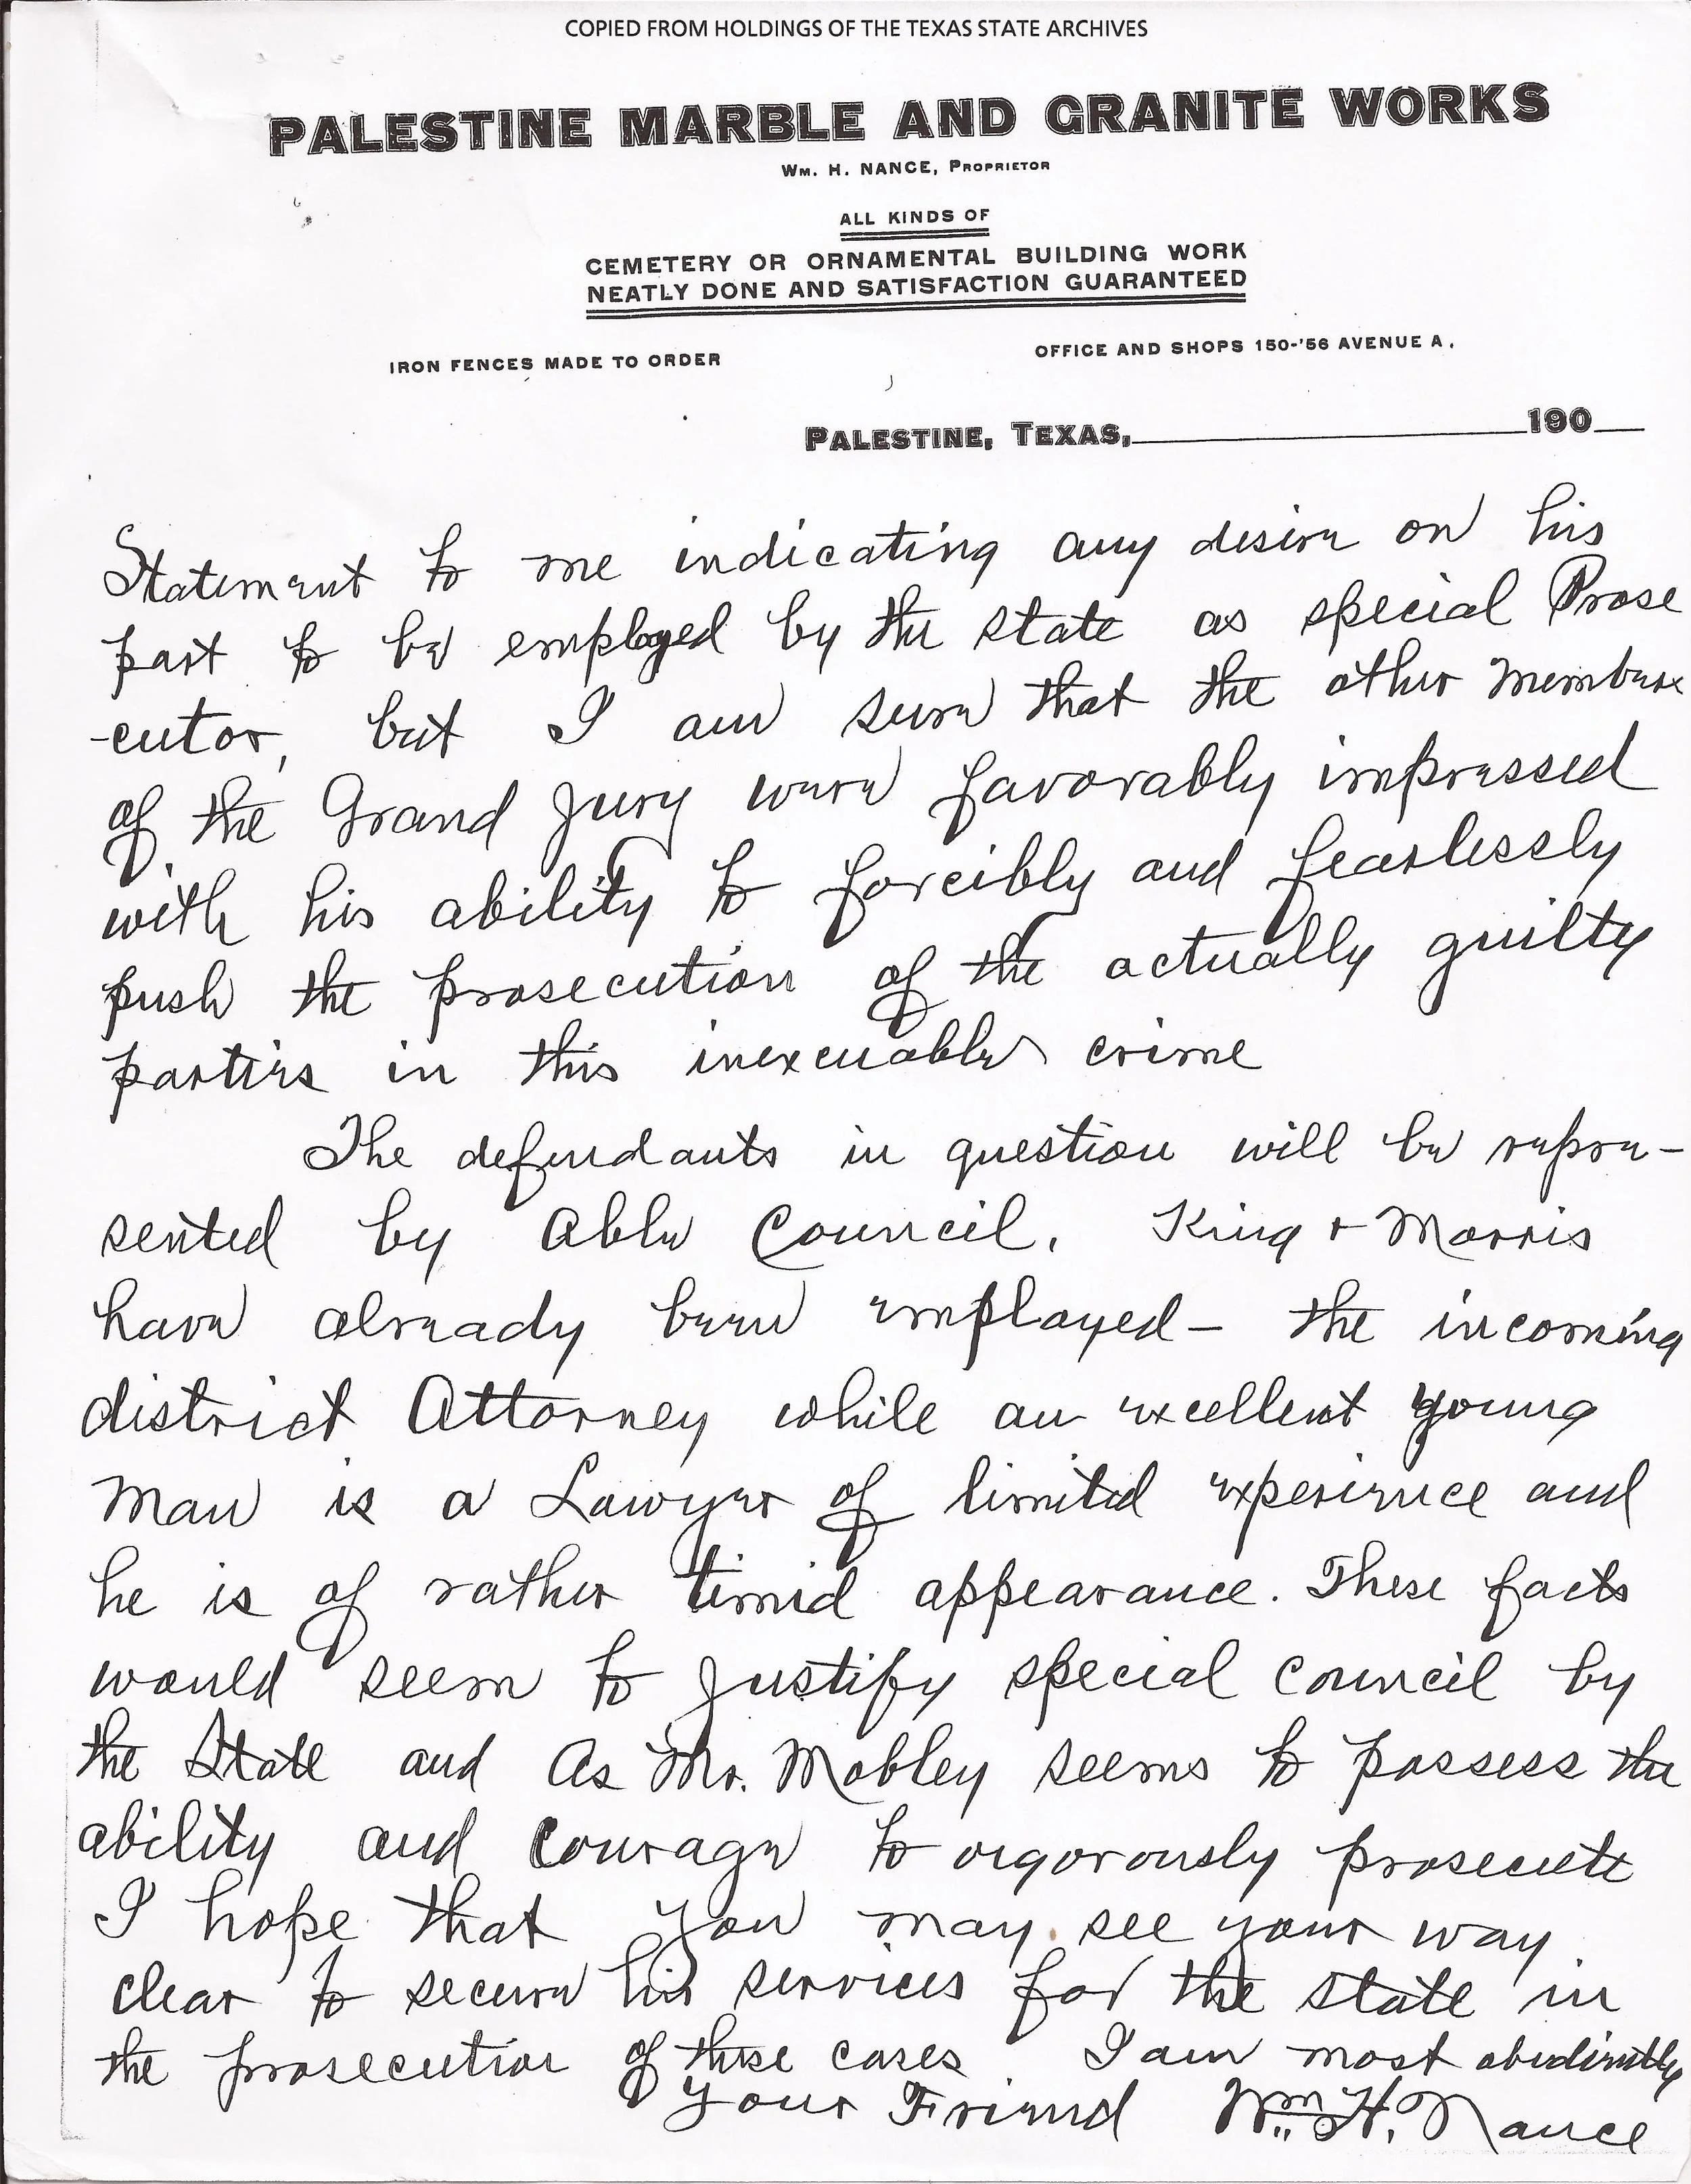 COPIED FROM HOLDINGS OF THE TEXAS STATE ARCHIVES
PALESTINE MARBLE AND GRANITE WORKS
WM. H. NANCE, PROPRIETOR
ALL KINDS OF
CEMETERY OR ORNAMENTAL BUILDING WORK
NEATLY DONE AND SATISFACTION GUARANTEED
IRON FENCES MADE TO ORDER
OFFICE AND SHOPS 150-'56 AVENUE A.
PALESTINE, TEXAS, 190
Statement to me indicating any desire on his
part to be employed by the state as special Prose
-cutor, but I am sure that the other members
of the Grand Jury were favorably impressed
with his ability to forcibly and fearlessly
push the prosecution of the actually guilty
parties in this inexcuable crime
The defendants in question will be repre-
sented by Able Council. King + Morris
have already been employed - the incoming
district Attorney while an excellent young
Man is a Lawyer of limited experience and
he is of rather timid appearance. These facts
would seem to Justify special Council by
the State and As Mr. Mobley seems to possess the
ability and Courage to vigorously prosecute
I hope that you may see your way
clear to secure his services for the state in
the prosecution of these cases I am most obediently
Your Friend Wm. H. Nance